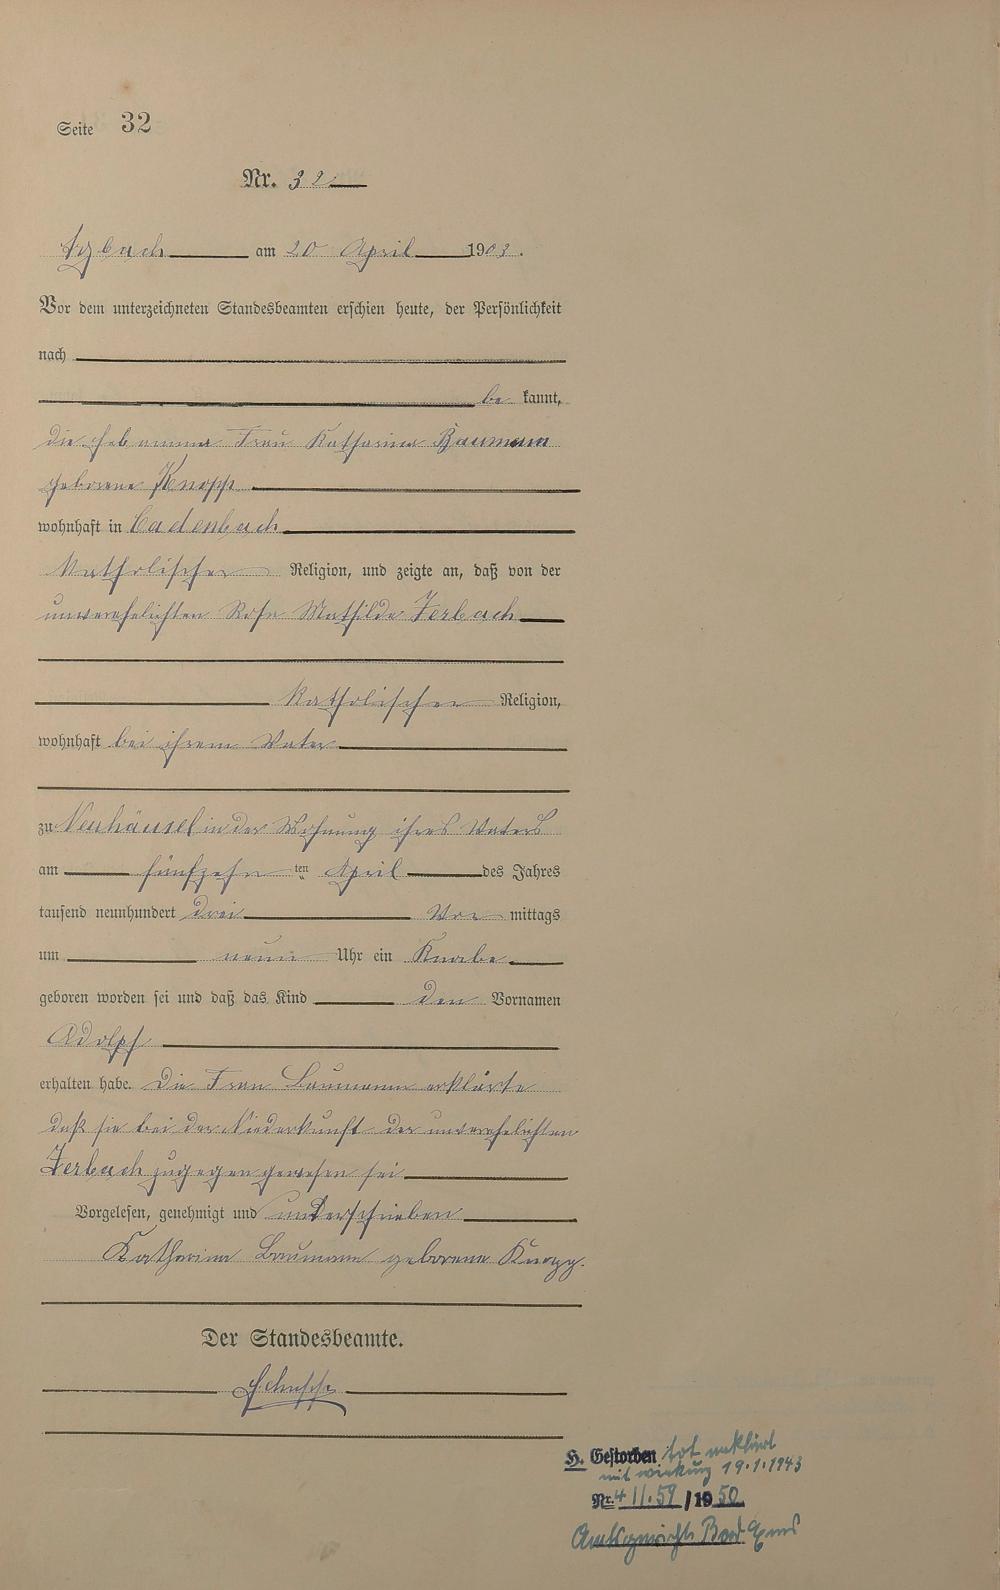 Seite 32
Nr. 32
am 20 April 1903.
Vor dem unterzeichneten Standesbeamten erschien heute, der Persönlichkeit
nach
be kannt,
die Hebamme Frau Katharina Baumann
geborene Knopp
wohnhaft in Cadenbach
katholischer Religion, und zeigte an, daß von der
unverehelichten Rosa Mathilde Zerbach
katholischer Religion,
wohnhaft bei ihrem Vater
zu Neuhäusel in der Wohnung ihres Vaters
am fünfzehn ten April des Jahres
tausend neunhundert drei Vor mittags
um neun Uhr ein Knabe
geboren worden sei und daß das Kind den Vornamen
Adolf
erhalten habe. Die Frau Baumann erklärte
daß sie bei der Niederkunft der unverehelichten
Zerbach zugegen gewesen sei
Vorgelesen, genehmigt und unterschrieben
Katharina Baumann geborene Knopp.
Der Standesbeamte.
H. Gestorben tot erklärt
mit wirkung 19.1.1943
Nr. 4 II. 59 / 19 50
Amtsgericht Bad Ems